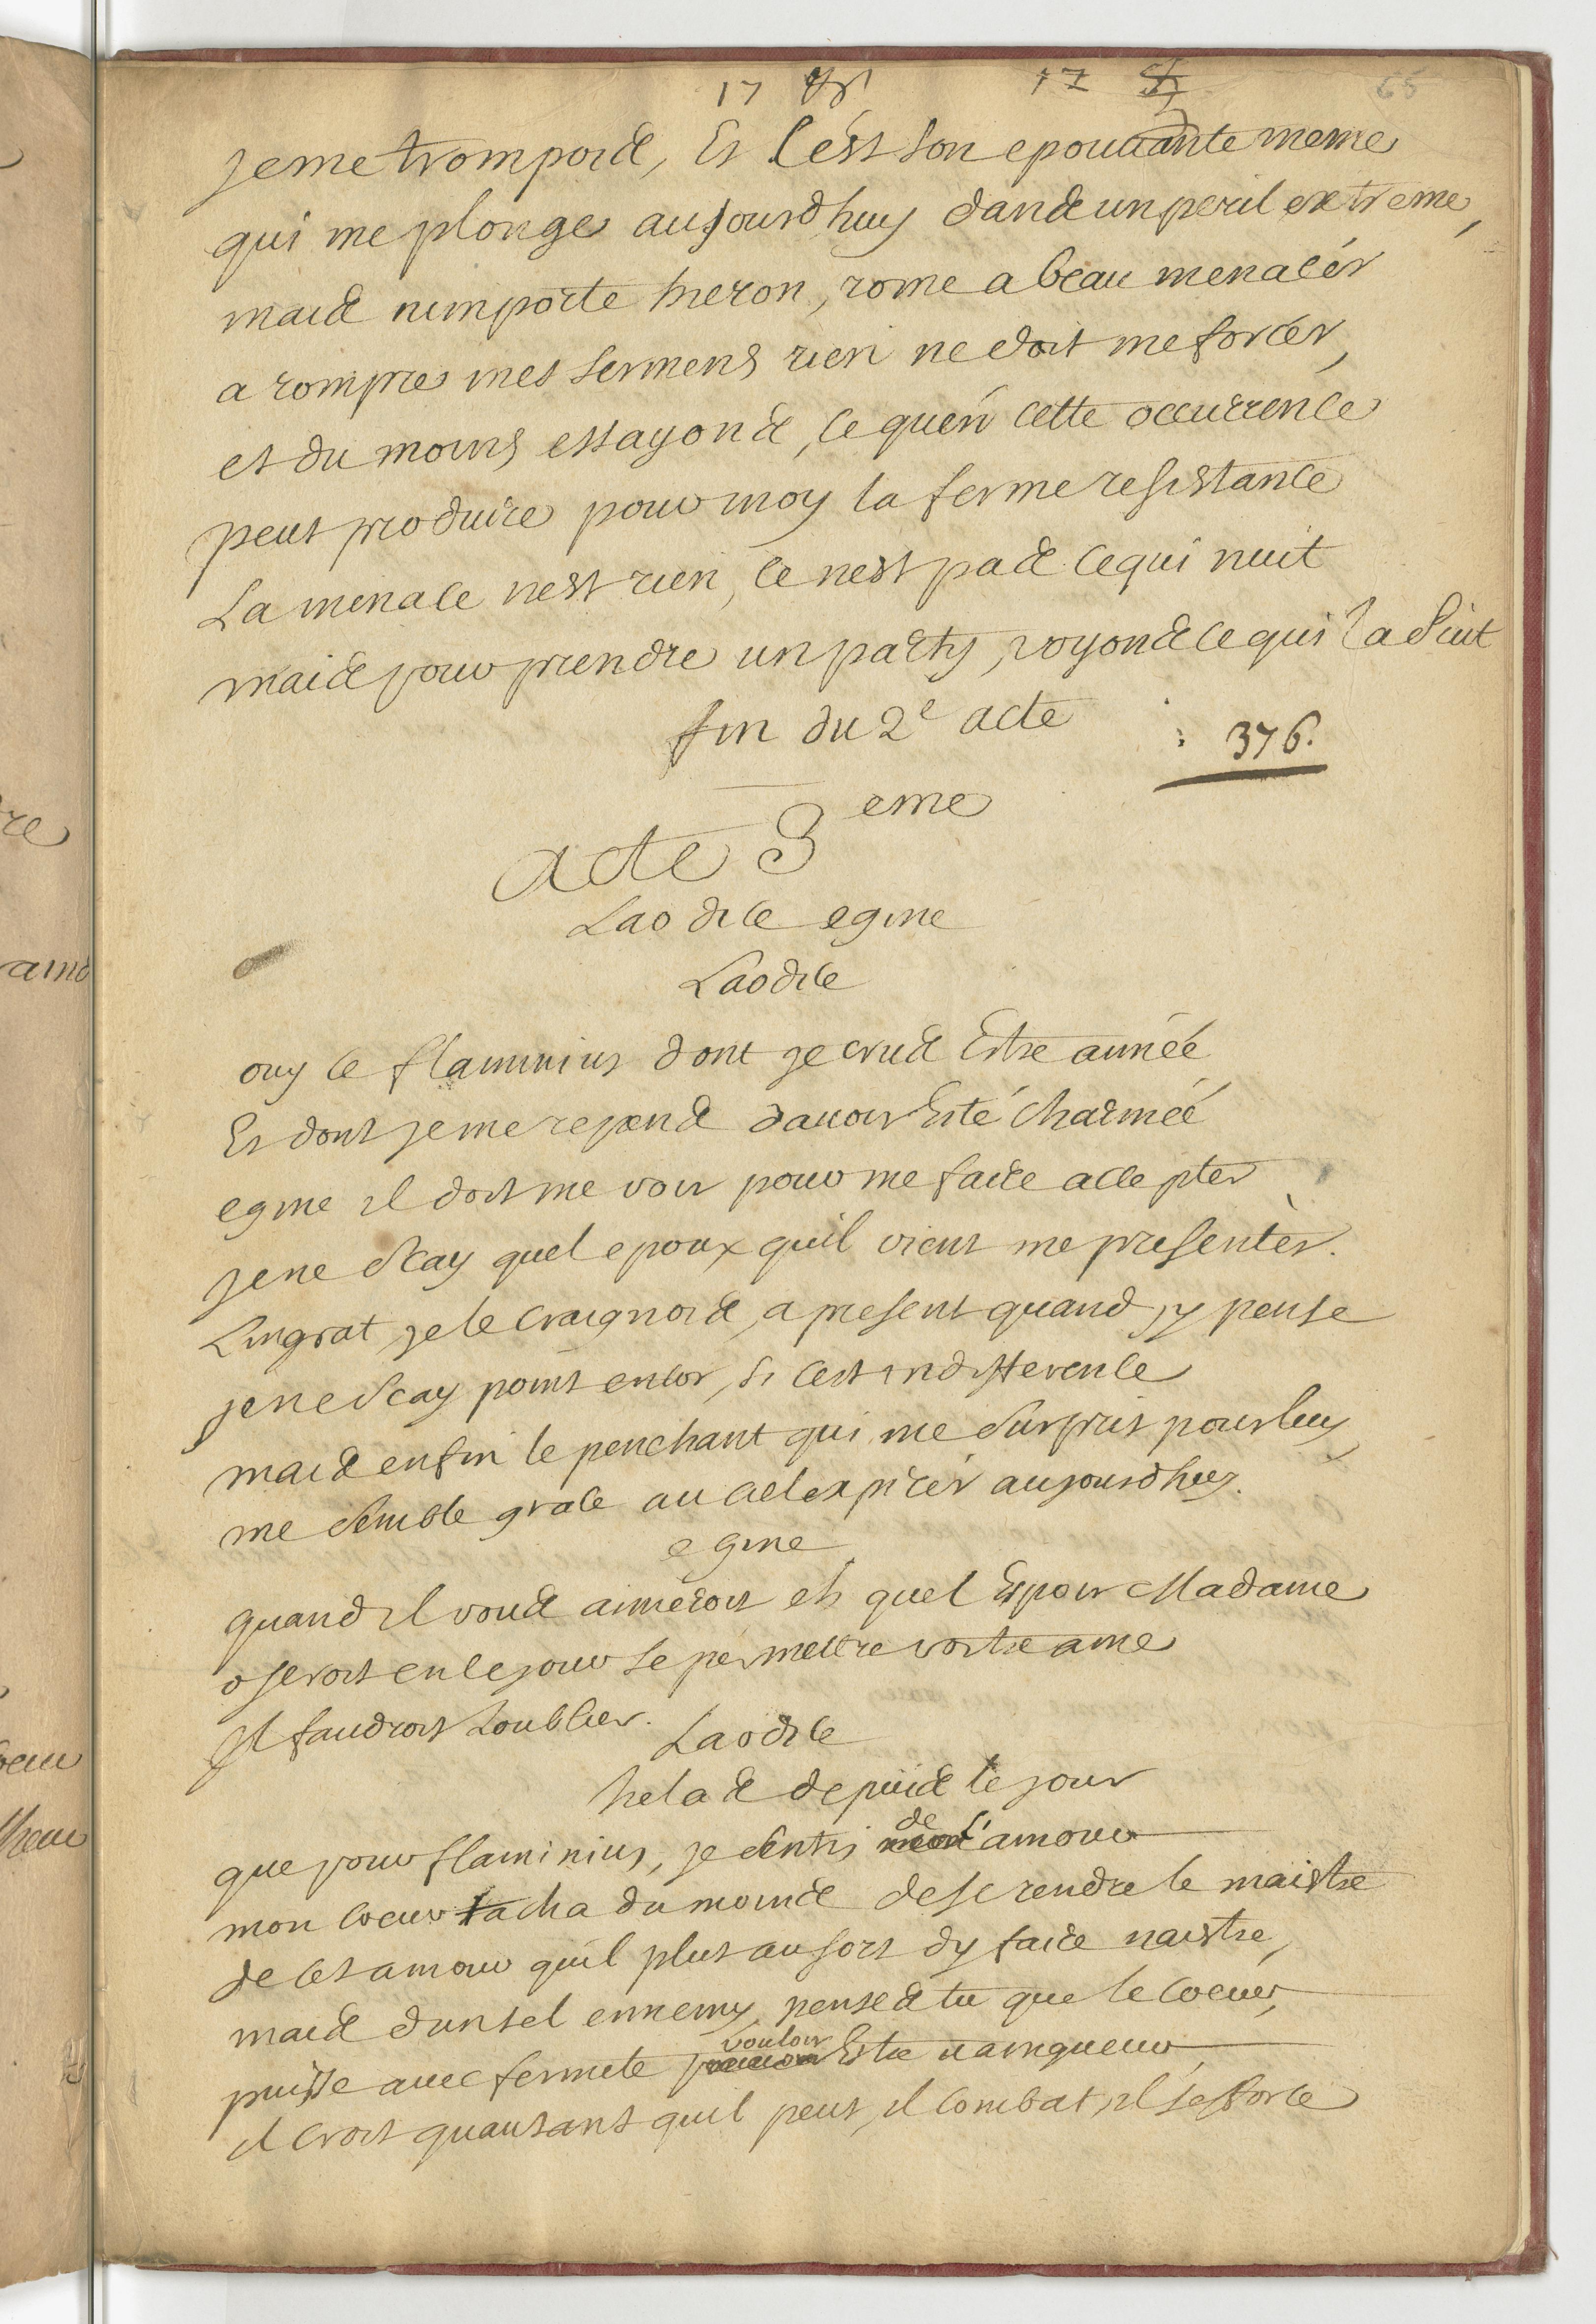 17 17 65
je me trompois, Et c'est son epouuante meme
qui me plonge aujourdhuy dans un peril extreme,
mais n'importe hieron, rome a beau menacer
a rompre mes sermens rien ne doit me forcer,
et du moins essayons, ce qu'en cette occurrence
peut produire pour moy la ferme resistance
La menace nest rien, ce nest pas ce qui nuit
mais pour prendre un party, voyons ce qui la suit
fin du 2e acte : 376.
acte 3eme
Laodice egine
Laodice
ouy ce flaminius dont je crus Estre aimée
Et dont je me repens dauoir Esté charmée
egine il doit me voir pour me faire accepter
je ne scay quel epoux qu'il vient me presenter.
Lingrat, je le craignois, a present quand jy pense
je ne scay point encor, si cest indifference
mais enfin le penchant qui me surprit pour luy,
me semble grace au ciel expirer aujourdhuy.
egine
quand il vous aimeroit eh quel Espoir Madame
oseroit en ce jour se permettre vostre ame
Il faudroit Loublier.
Laodice
helas depuis le jour
de
que pour flaminius, je sentis l'amour
mon coeur tacha du moins de se rendre le maistre
de cet amour qu'il plut au sort dy faire naistre,
mais dun tel ennemy penses tu que le coeur,
vouloir
puisse auec fermeté Estre uainqueur,
il croit qu'autant quil peut, il combat, il sefforce